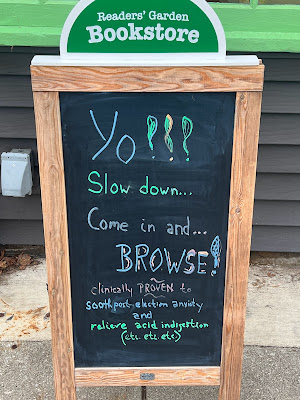 Readers' Garden
Bookstore
Yo!!!
Slow down...
Come in and...
BROWSE!
clinically PROVEN to
sooth post-election anxiety
and
relieve acid indigestion
(etc. etc. etc.)